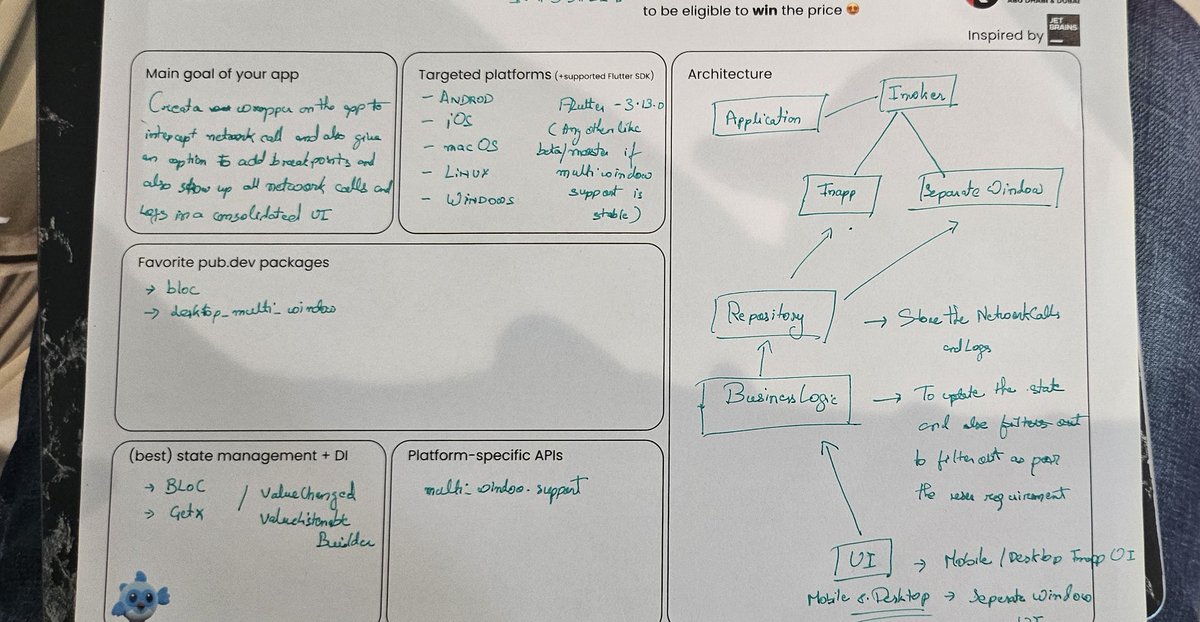 to be eligible to win the price 😍
ABU DHABI & DUBAI
Inspired by
JET
BRAINS
Main goal of your app
Create a wrapper on the app to
intercept network call and also give
an option to add breakpoints and
also show up all network calls and
Logs in a consolidated UI
Targeted platforms (+supported Flutter SDK)
- ANDROID
- iOS
- mac OS
- LINUX
- WINDOWS
Flutter - 3.13.0
(Any other like
beta/master if
multi window
support is
stable)
Favorite pub.dev packages
→ bloc
→ desktop_multi_window
(best) state management + DI
→ BLOC
→ GetX
/ ValueChanged
ValueListenable
Builder
Platform-specific APIs
multi_window.support
Architecture
Application
Invoker
Inapp
Separate Window
Repository
→ Store the Network Calls
and Logs
Business Logic
→ To update the state
and also filters out
to filter out as per
the user requirement
UI
→ Mobile / Desktop Inapp UI
Mobile & Desktop → Seperate window